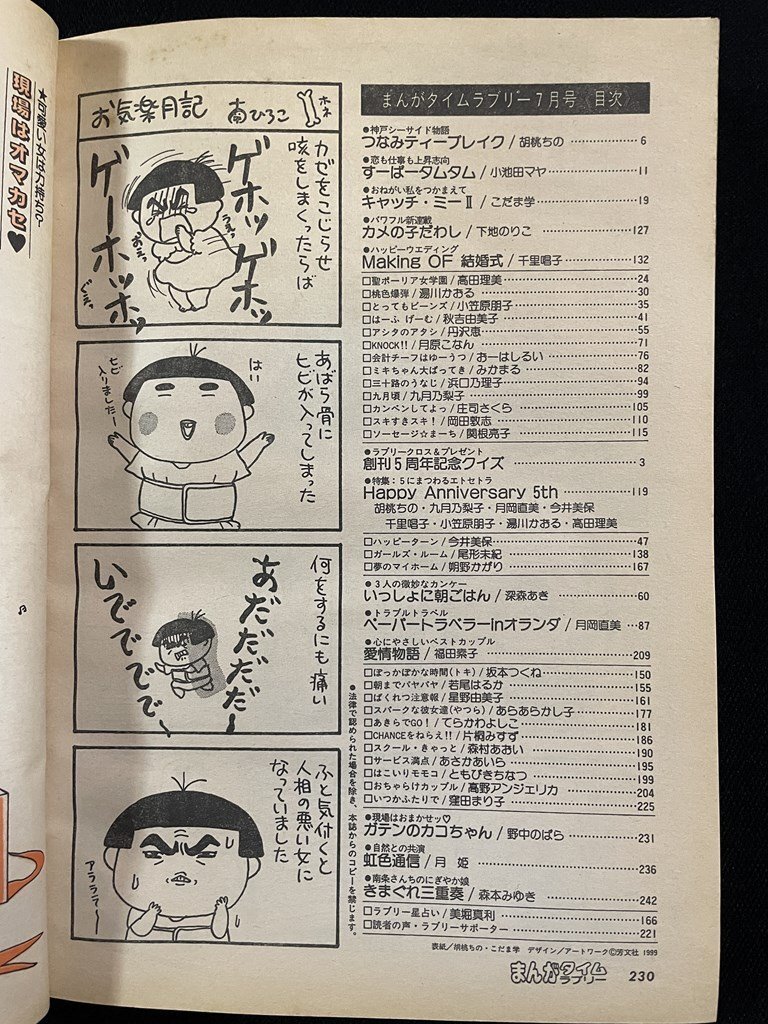 ★可愛い女は力持だら
現場はオマカセ♥
お気楽月記 南ひろこ
ホネ
カゼをこじらせ
咳をしまくったらば
ゲホッ ゲホッ
ゲーホッホッ
うえっ
おえっ
ぐえっ
あばら骨に
ヒビが入ってしまった
はい
ヒビ
入りましたー
何をするにも痛い
あだだだだ〜
いでででで〜
ふと気付くと
人相の悪い女に
なっていました
アララ〜
●法律で認められた場合を除き、本誌からのコピーを禁じます。
まんがタイムラブリー7月号〈目次〉
●神戸シーサイド物語
つなみティーブレイク/胡桃ちの 6
●恋も仕事も上昇志向
すーぱータムタム/小池田マヤ 11
●おねがい私をつかまえて
キャッチ・ミーⅡ/こだま学 19
●パワフル新連載
カメの子だわし/下地のりこ 127
●ハッピーウエディング
Making OF 結婚式/千里唱子 132
□聖ポーリア女学園/高田理美 24
□桃色爆弾/湯川かおる 30
□とってもビーンズ/小笠原朋子 35
□はーふ げーむ/秋吉由美子 41
□アシタのアタシ/丹沢恵 55
□KNOCK!!/月原こなん 71
□会計チーフはゆーうつ/おーはしるい 76
□ミキちゃん大ばってき/みかまる 82
□三十路のうなじ/浜口乃理子 94
□九月頃/九月乃梨子 99
□カンベンしてよっ/庄司さくら 105
□スキすきスキ!/岡田敦志 110
□ソーセージ☆まーち/関根亮子 115
●ラブリークロス&プレゼント
創刊5周年記念クイズ 3
●特集:5にまつわるエトセトラ
Happy Anniversary 5th 119
胡桃ちの・九月乃梨子・月岡直美・今井美保
千里唱子・小笠原朋子・湯川かおる・高田理美
□ハッピーターン/今井美保 47
□ガールズ・ルーム/尾形未紀 138
□夢のマイホーム/朔野かがり 167
●3人の微妙なカンケー
いっしょに朝ごはん/深森あき 60
●トラブルトラベル
ペーパートラベラーinオランダ/月岡直美 87
●心にやさしいベストカップル
愛情物語/福田素子 209
□ぽっかぽかな時間(トキ)/坂本つくね 150
□朝までバヤバヤ/若尾はるか 155
□ばくれつ注意報/星野由美子 161
□スパークな彼女達(やつら)/あらあらかし子 177
□あきらでGO!/てらかわよしこ 181
□CHANCEをねらえ!!/片桐みすず 186
□スクール・きゃっと/森村あおい 190
□サービス満点/あさかあいら 195
□はこいりモモコ/ともびきちなつ 199
□おちゃらけカップル/高野アンジェリカ 204
□いつかふたりで/窪田まり子 225
●現場はおまかせッ♡
ガテンのカコちゃん/野中のばら 231
●自然との共演
虹色通信/月 姫 236
●南条さんちのにぎやか娘
きまぐれ三重奏/森本みゆき 242
□ラブリー星占い/美堀真利 166
□読者の声・ラブリーサポーター 221
表紙/胡桃ちの・こだま学 デザイン/アートワーク©芳文社 1999
まんがタイムラブリー 230